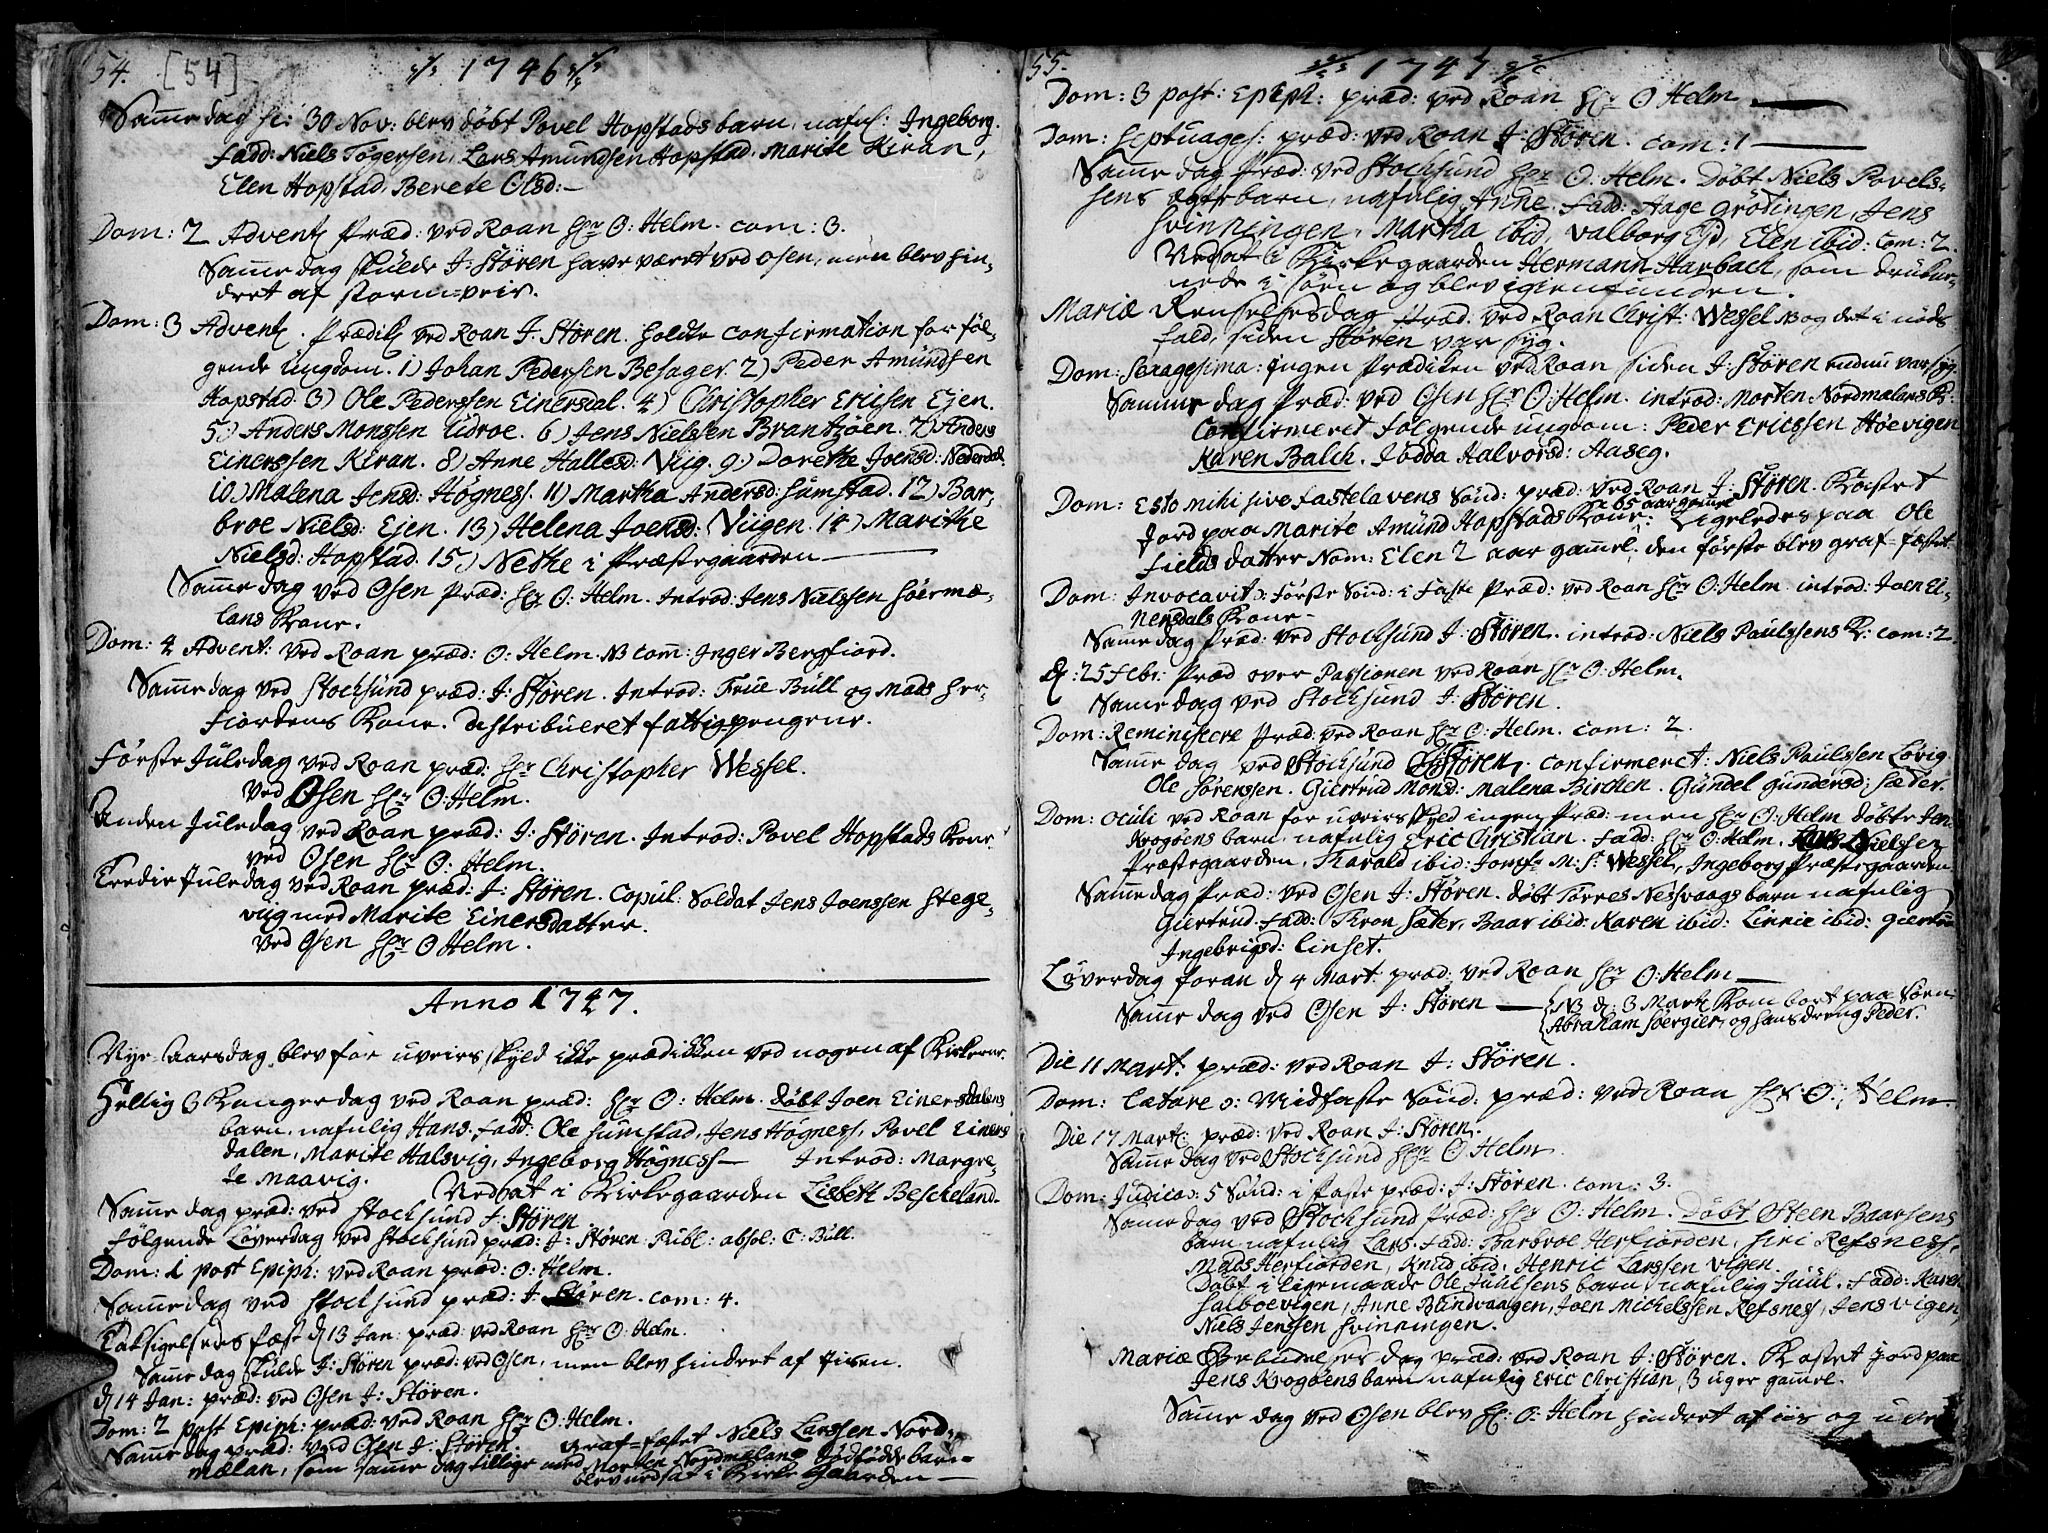 54. [54] 1746
Samme dag sc: 30 Nov: blev döbt Povel Hopstads barn, nafnl: Ingeborg.
Fadd: Niels Tøgersen, Lars Amundsen Hopstad, Marite Kiran,
Elen Hopstad, Berete Olsd:
Dom: 2 Advent: Præd: ved Roan Hr O: Helm. com: 3.
Samme dag skulde J: Stören have været ved Osen, men blev hin-
dret af storm-veir.
Dom: 3 Advent. Prædik ved Roan J: Stören. holdte confirmation for föl-
gende ungdom. 1) Johan Pedersen Besager. 2) Peder Amundsen
Hopstad. 3) Ole Pederssen Einersdal. 4) Christopher Ericsen Ejen.
5) Anders Monssen Udroe. 6) Jens Nielssen Brantzöen. 7) Anders
Einerssen Kiran. 8) Anne Hallesd: Viig. 9) Dorethe Joensd: Nederdal.
10) Malena Jensd: Högness. 11) Martha Andersd: Sumstad. 12) Bar-
broe Nielsd: Ejen. 13) Helena Joensd: Viigen. 14) Marithe
Nielsd: Hopstad. 15) Nethe i Præstegaarden
Samme dag ved Osen Præd: Hr O: Helm. Introd: Jens Nielssen Söermæ-
lans Kone.
Dom: 4 Advent: ved Roan præd: O: Helm. NB com: Inger Bergfiord.
Samme dag ved Stocksund præd: J: Stören. Introd: Frue Büll og Mads Her-
fiordens Kone. distribueret fattigpengene.
Förste Juledag ved Roan præd: Hr Christopher Wessel.
Ved Osen Hr O: Helm.
Anden Juledag ved Roan præd: J: Stören. Introd: Povel Hopstads Kone
ved Osen Hr O: Helm.
Tredie Juledag ved Roan præd: J: Stören. Copul: Soldat Jens Joenssen Stege-
viig med Marite Einersdatter.
Ved Osen Hr O Helm.
Anno 1747.
Nye-Aarsdag blev for uveirs skyld ikke prædikken ved nogen af Kirkerne.
Hellig 3 Kongersdag ved Roan præd: Hr O: Helm. döbt Joen Einersdalens
barn, nafnlig Hans. Fadd: Ole Sumstad, Jens Högness, Povel Einers
dalen, Marite Halsvig, Ingeborg Högness Introd: Margre-
te Maavig. Nedsat i Kirkegaarden Lisbeth Beskeland.
Samme dag præd: ved Stocksund J: Stören
Følgende Löverdag ved Stocksund præd: J: Stören. Publ: absol: C: Büll.
Dom: 1 post Epiph: ved Roan præd: O: Helm.
Samme dag ved Stocksund præd: J: Stören. com: 4.
Taksigelses fæst d 13 Jan: præd: ved Roan Hr O: Helm.
Samme dag skulde J: Stören præd: ved Osen, men blev hindret af Jisen.
d 14 Jan: præd: ved Osen J: Stören.
Dom: 2 post Epiph: præd: ved Roan Hr O: Helm.
Samme dag præd: ved Osen J: Stören. Graf-fæstet Niels Larssen Nord-
mælan, som samme dag tillige med Morten Nordmælans dödfödde barn
blev nedsat i Kirke Gaarden
55. 1747
Dom: 3 post: Epiph: præd: ved Roan Hr O Helm
Dom: Septuages: præd: ved Roan J: Stören. com: 1
Samme dag Præd: ved Stocksund Hr O: Helm. Döbt Niels Povels-
sens ægte barn, nafnlig Anne. Fadd: Aage Grötingen, Jens
Svinningen, Martha ibid, Valborg Ejd, Elen ibid: com: 2.
Nedsat i Kirkegaarden Hermann Harbach, som druk-
nede i Söen og blev igienfunden.
Mariæ Renselsesdag præd: ved Roan Christ: Wessel NB og det i nöds
fald, siden Stören var syg.
Dom: Sexagesima: Ingen Prædiken ved Roan siden J: Stören endnu var syg.
Samme dag Præd: ved Osen Hr O: Helm. introd: Morten Nordmælans K:
Confirmeret fölgende ungdom: Peder Ericssen Höevigen
Karen Balch. Jödda Halvorsd: Aaseg.
Dom: Esto mihi sive fastelavens Sönd: præd: ved Roan J: Stören. Kastet
jord paa Marite Amund Hopstads Kone 65 aar gammel. Ligeledes paa Ole
Fields datter Nom: Elen 2 aar gammel. den förste blev graf-fæstet
Dom: Invocavit: Förste Sönd: i Faste Præd: ved Roan Hr O: Helm. introd: Joen Ei-
nersdals Kone
Samme dag Præd: ved Stocksund J: Stören. introd: Niels Paulssens K: com: 2
d: 25 Febr: Præd over Passionen ved Roan Hr O: Helm.
Samme dag ved Stocksund J: Stören.
Dom: Reminiscere Præd: ved Roan Hr O: Helm. com: 2.
Samme dag ved Stocksund J: Stören. confirmeret: Niels Paulssen Lövig.
Ole Sörenssen. Giertrud Monsd: Malena Birthen. Gundel Gundersd: Sæder.
Dom: Oculi ved Roan for uveirs skyld ingen Præd: men Hr O: Helm döbte Jens
Krogöens barn, nafnlig Eric Christian. Fadd: Hr O: Helm, Lars Nielsen
Præstegaarden, Tharald ibid: Jomfr M: S: Wessel, Ingeborg Præstegaarden
Samme dag Præd: ved Osen J: Stören. döbt Torres Nesvaags barn nafnlig
Giertrud. Fadd: Thron Sæter, Baar ibid: Karen ibid: Linnie ibid: Giertru
Ingebrigtsd: Linset.
Löverdag foran d 4 Mart: præd: ved Roan Hr O: Helm
Samme dag ved Osen J: Stören NB d: 3 Martz Kom bort paa Söen
Abraham Söergier og hans dreng Peder.
Die 11 Mart: præd: ved Roan J: Stören.
Dom: Lætare: Midfaste Sönd: præd: ved Roan Hr O: Helm.
Die 17 Mart: præd: ved Roan J: Stören.
Samme dag ved Stocksund Hr O Helm
Dom: Judica: 5 Sönd: i Faste præd: J: Stören. com: 3.
Samme dag ved Stocksund Præd: Hr O: Helm. Döbt Steen Baarsens
barn nafnlig Lars. Fadd: Barbroe Herfiorden, Siri Refsness,
Mads Herfiorden, Knud ibid: Henric Larssen vigen.
Döbt i Ligemaade Ole Juulsens barn, nafnlig Juul. Fadd: Karen
Salboevigen, Anne Sundvaagen, Joen Michelssen Refsness, Jens vigen,
Niels Jenssen Svinningen.
Mariæ Bebudelses dag præd: ved Roan J: Stören. Kastet jord paa
Jens Krogöens barn nafnlig Eric Christian, 3 uger gammel.
Samme dag ved Osen blev Hr O: Helm hindret af iis og